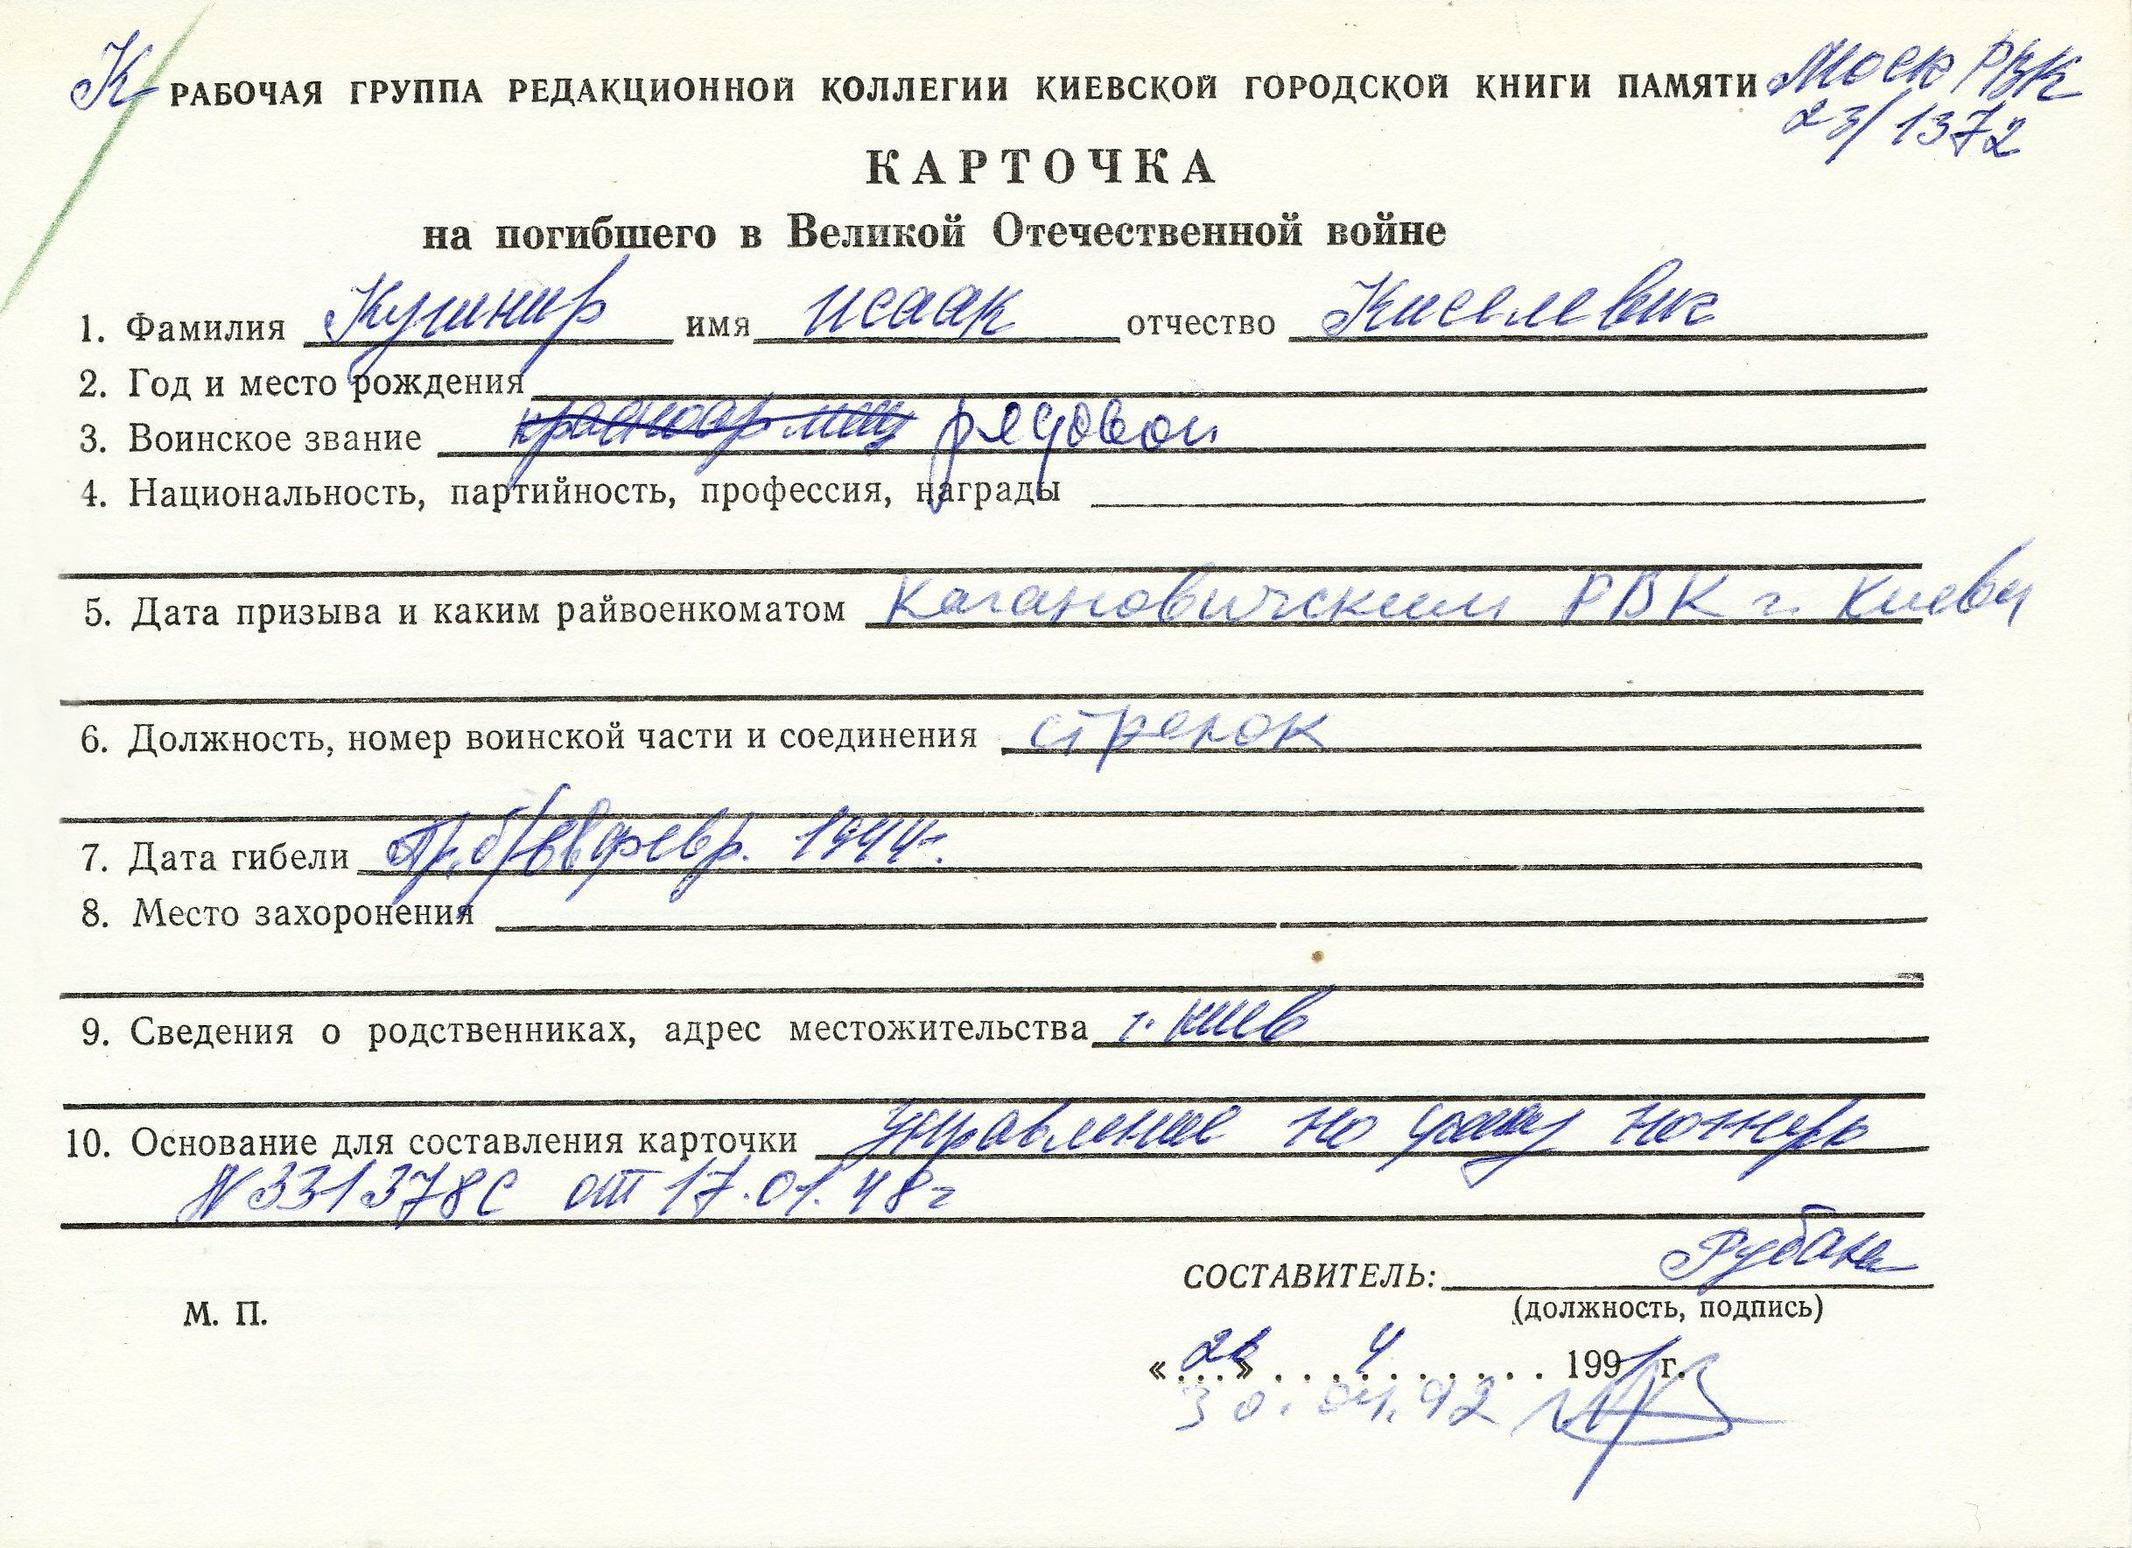 К РАБОЧАЯ ГРУППА РЕДАКЦИОННОЙ КОЛЛЕГИИ КИЕВСКОЙ ГОРОДСКОЙ КНИГИ ПАМЯТИ Моск РВК
23/1372
КАРТОЧКА
на погибшего в Великой Отечественной войне
1. Фамилия Кушнир имя Исаак отчество Киселевич
2. Год и место рождения
3. Воинское звание красноармеец рядовой
4. Национальность, партийность, профессия, награды
5. Дата призыва и каким райвоенкоматом Кагановичским РВК г. Киева
6. Должность, номер воинской части и соединения стрелок
7. Дата гибели пр. б/в в февр. 1944г.
8. Место захоронения
9. Сведения о родственниках, адрес местожительства г. Киев
10. Основание для составления карточки Управление по учету потерь
N 331378С от 17.01.48г
СОСТАВИТЕЛЬ:
(должность, подпись)
М. П.
« » 4 1991 г.
30.04.92